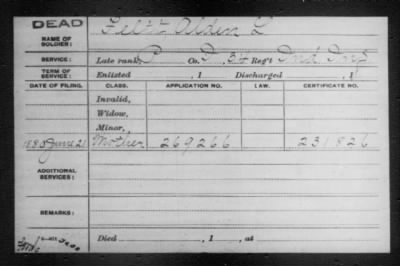 DEAD
NAME OF SOLDIER: Alden L
SERVICE: Late rank, P Co. D, 34 Reg't
TERM OF SERVICE: Enlisted , 1 Discharged , 1
DATE OF FILING. CLASS. APPLICATION NO. LAW. CERTIFICATE NO.
Invalid,
Widow,
Minor,
1880 June 21 Mother 269266 231826
ADDITIONAL SERVICES:
REMARKS:
Died , 1 , at